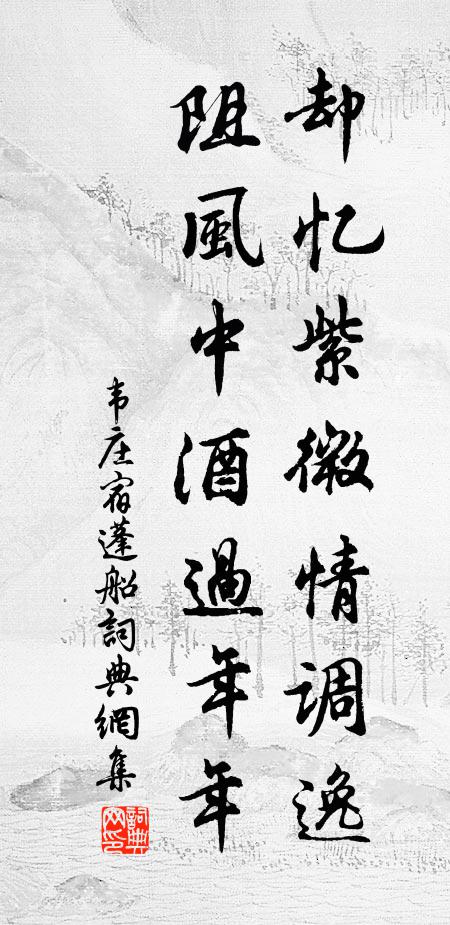 却忆紫微情调逸
阻風中酒過年年
韦庄宿蓬船詞典網集
詞典网印